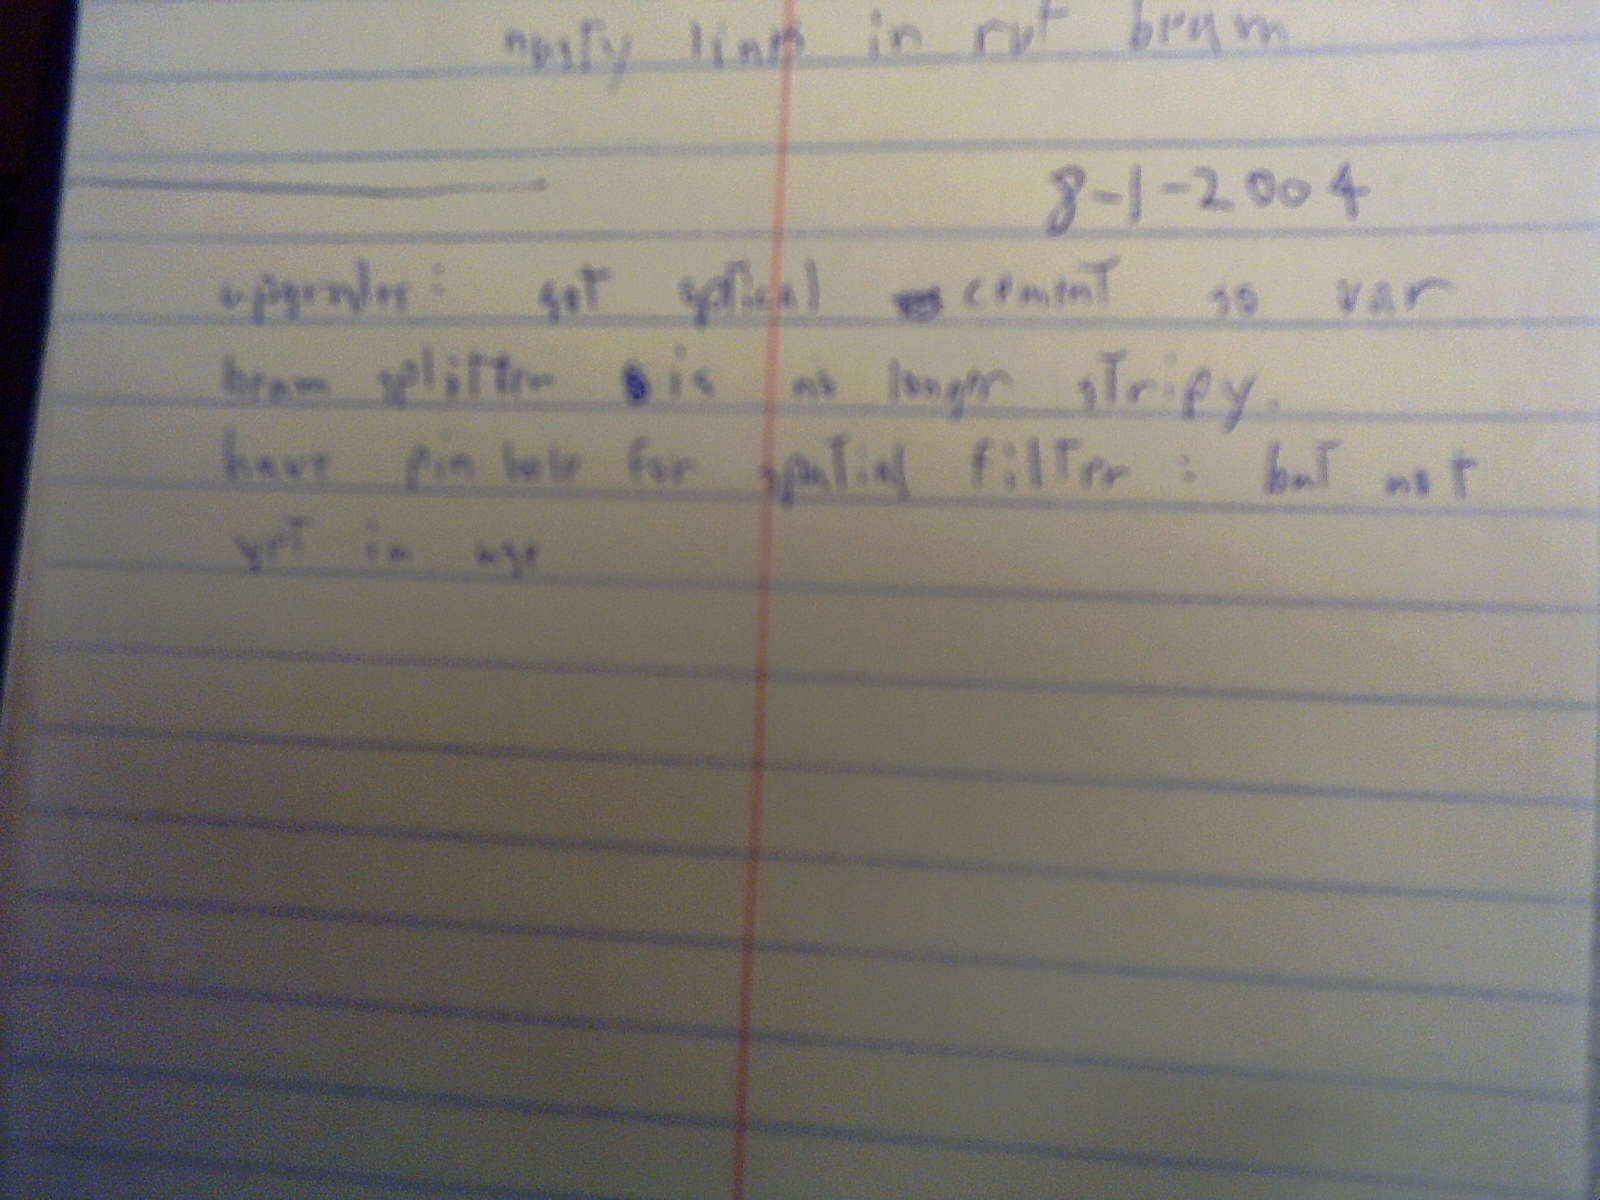 nasty lines in ref beam
8-1-2004
upgrades: got optical cement so var
beam splitter is no longer stripy.
have pin hole for spatial filter : but not
yet in use